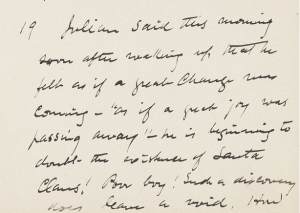 19 Julian said this morning
soon after waking up, that he
felt as if a great change was
coming - "as if a great joy was
passing away" - he is beginning to
doubt the existence of Santa
Claus! Poor boy! Such a discovery
does leave a void.